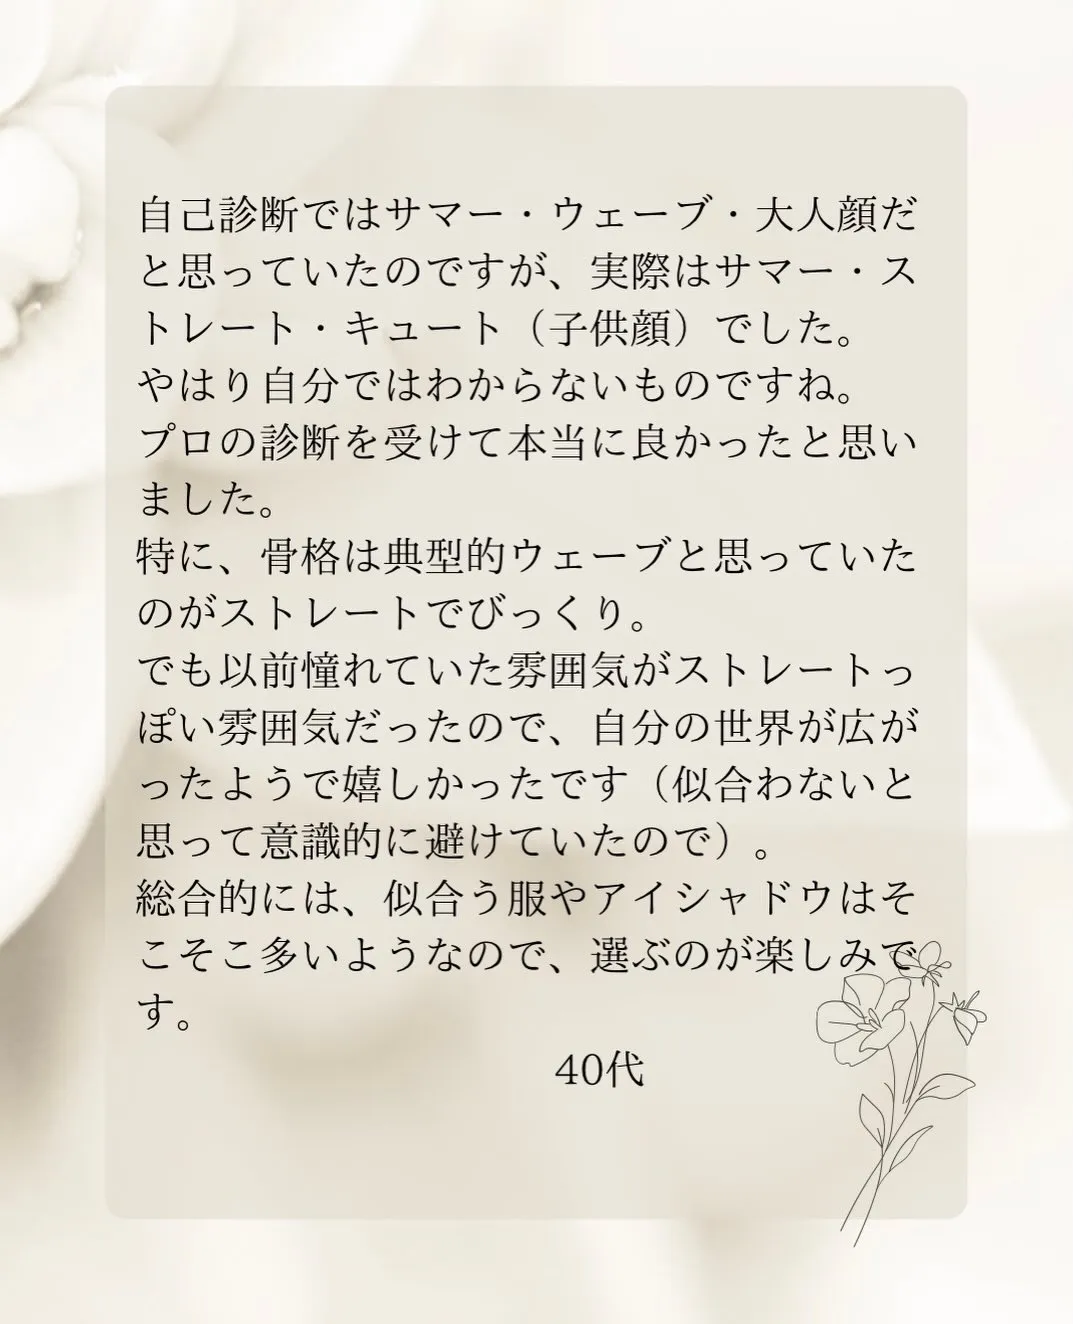 自己診断ではサマー・ウェーブ・大人顔だ
と思っていたのですが、実際はサマー・ス
トレート・キュート（子供顔）でした。
やはり自分ではわからないものですね。
プロの診断を受けて本当に良かったと思い
ました。
特に、骨格は典型的ウェーブと思っていた
のがストレートでびっくり。
でも以前憧れていた雰囲気がストレートっ
ぽい雰囲気だったので、自分の世界が広が
ったようで嬉しかったです（似合わないと
思って意識的に避けていたので）。
総合的には、似合う服やアイシャドウはそ
こそこ多いようなので、選ぶのが楽しみで
す。
40代